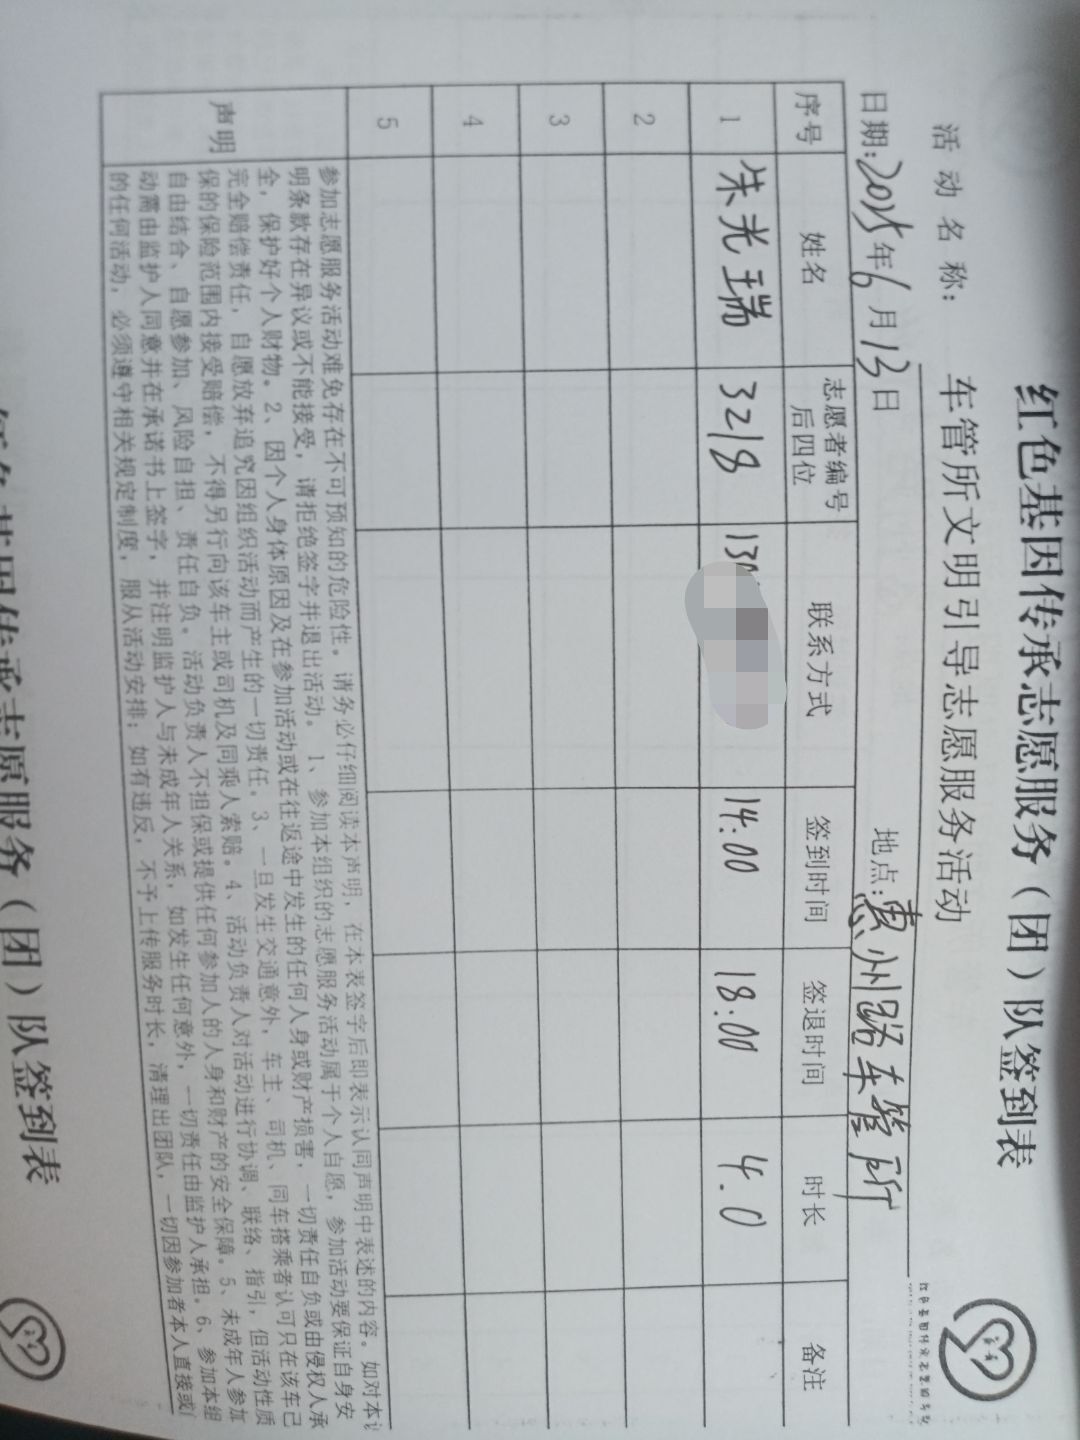 红色基因传承志愿服务（团）队签到表
活动名称： 车管所文明引导志愿服务活动
日期：2025年6月13日 地点：惠州路车管所
序号 姓名 志愿者编号后四位 联系方式 签到时间 签退时间 时长 备注
1 朱光瑞 3218 130 14:00 18:00 4.0
2
3
4
5
声明
参加志愿服务活动难免存在不可预知的危险性。请务必仔细阅读本声明，在本表签字后即表示认同声明中表述的内容。如对本
明条款存在异议或不能接受，请拒绝签字并退出活动。1、参加本组织的志愿服务活动属于个人自愿，参加活动要保证自身安
全，保护好个人财物。2、因个人身体原因及在参加活动或在往返途中发生的任何人身或财产损害，一切责任自负或由侵权人承
完全赔偿责任，自愿放弃追究因组织活动而产生的一切责任。3、一旦发生交通意外，车主、司机、同车搭乘者认可只在该车已
保的保险范围内接受赔偿，不得另行向该车主或司机及同乘人索赔。4、活动负责人对活动进行协调、联络、指引，但活动性质
自由结合、自愿参加、风险自担、责任自负。活动负责人不担保或提供任何参加人的人身和财产的安全保障。5、未成年人参加
动需由监护人同意并在承诺书上签字，并注明监护人与未成年人关系，如发生任何意外，一切责任由监护人承担。6、参加本组
的任何活动，必须遵守相关规定制度，服从活动安排；如有违反，不予上传服务时长，清理出团队，一切因参加者本人直接或
红色基因传承志愿服务（团）队签到表